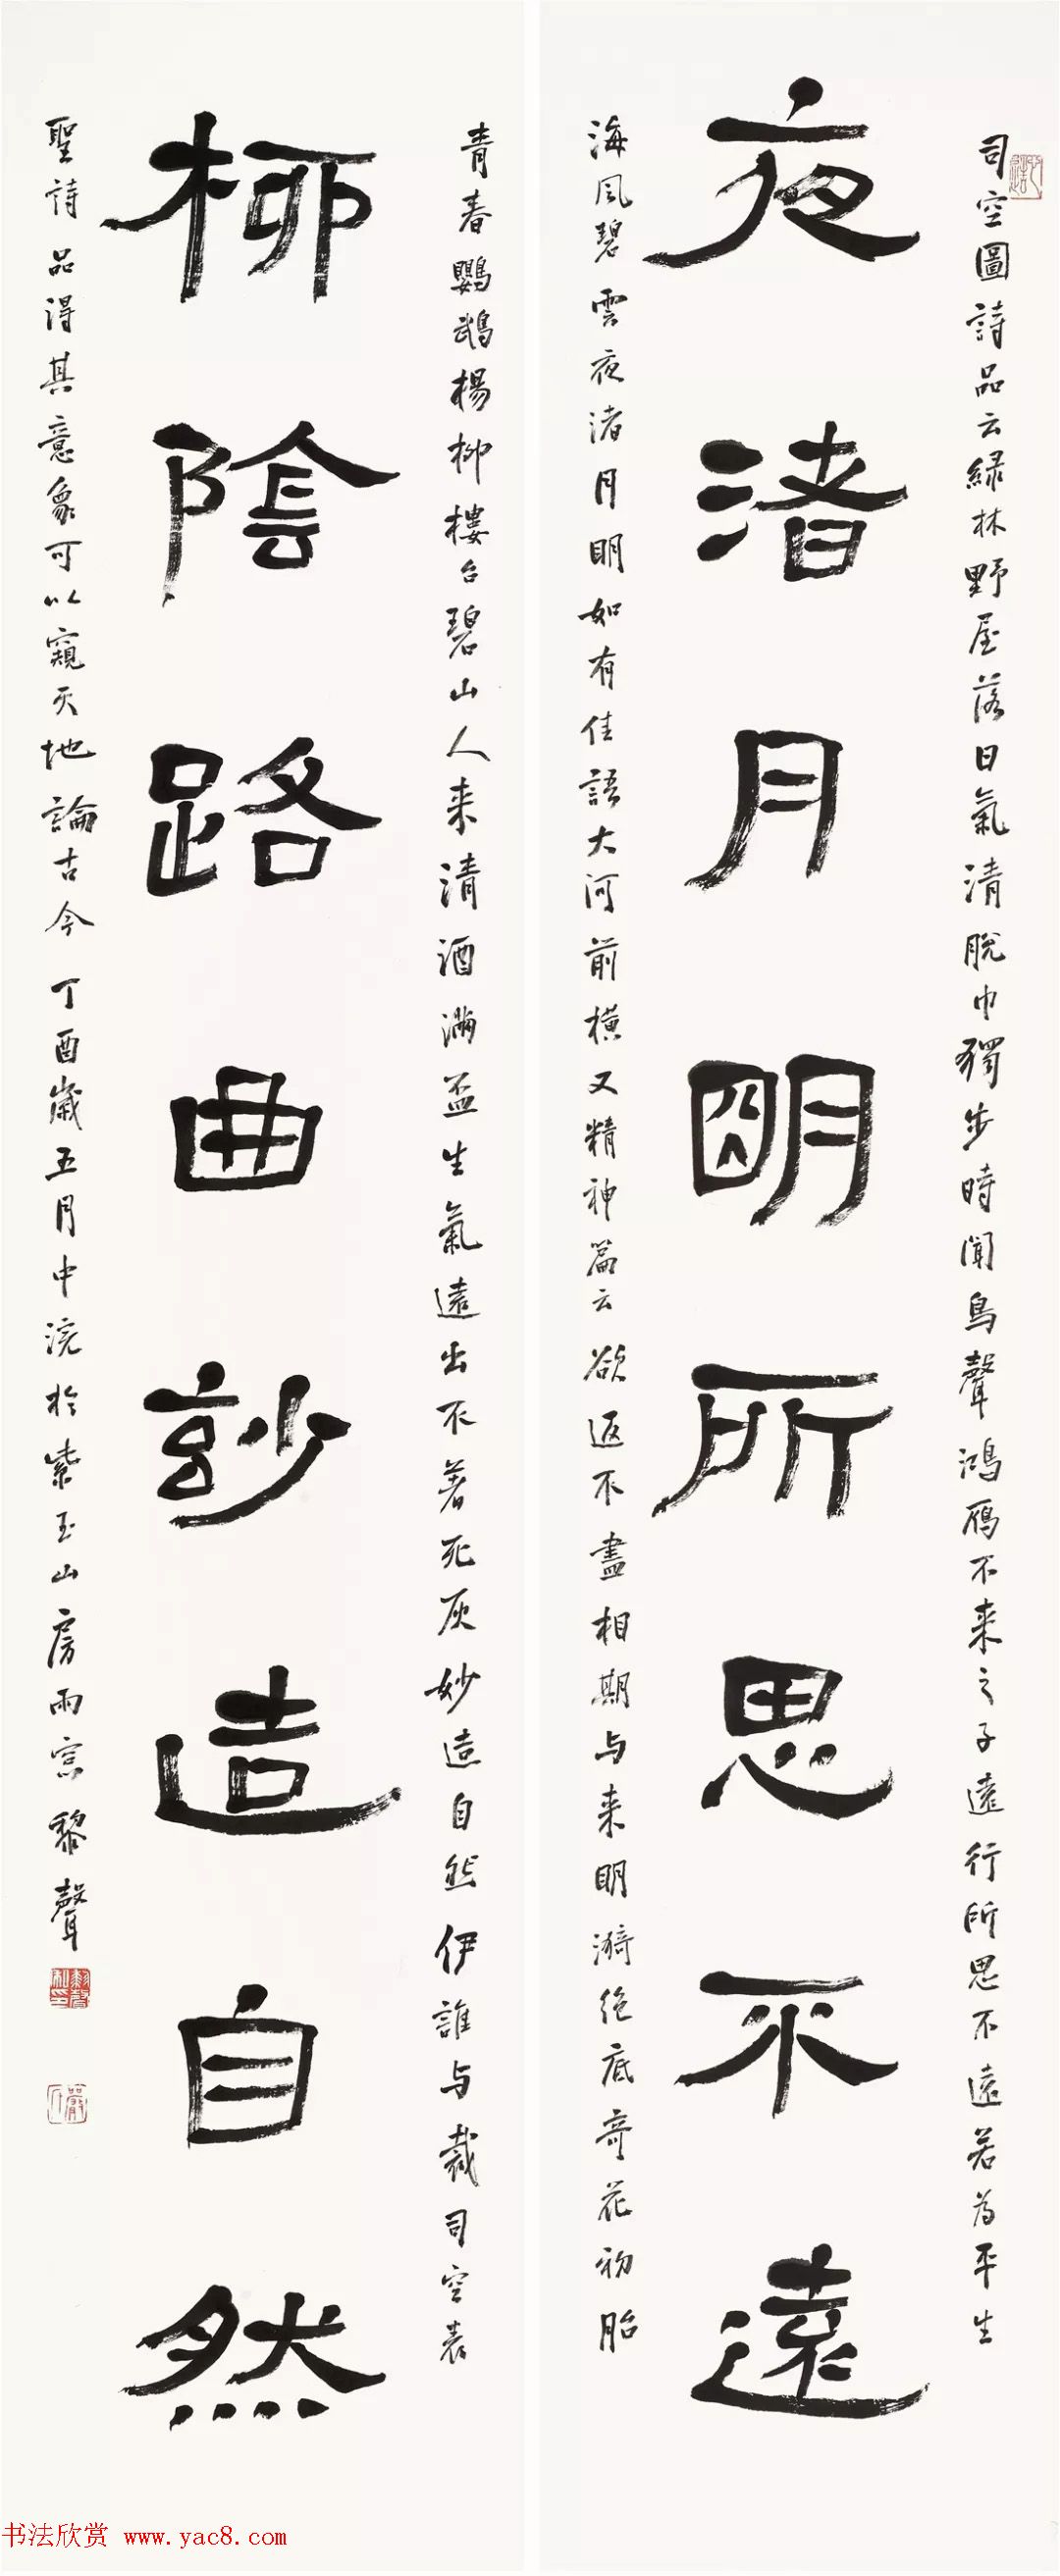 司空圖詩品云緑林野屋落日氣清脫巾獨步時聞鳥聲鴻雁不来之子遠行所思不遠若為平生
夜渚月明所思不遠
海風碧雲夜渚月明如有佳語大河前橫又精神篇云欲返不盡相期与来明漪绝底奇花初胎
青春鸚鵡楊柳樓台碧山人来清酒滿盃生氣遠出不著死灰妙造自然伊誰与裁司空表
柳陰路曲玅造自然
聖詩品得其意象可以窺天地論古今 丁酉歲五月中浣於紫玉山房雨窗黎聲
书法欣赏 www.yac8.com